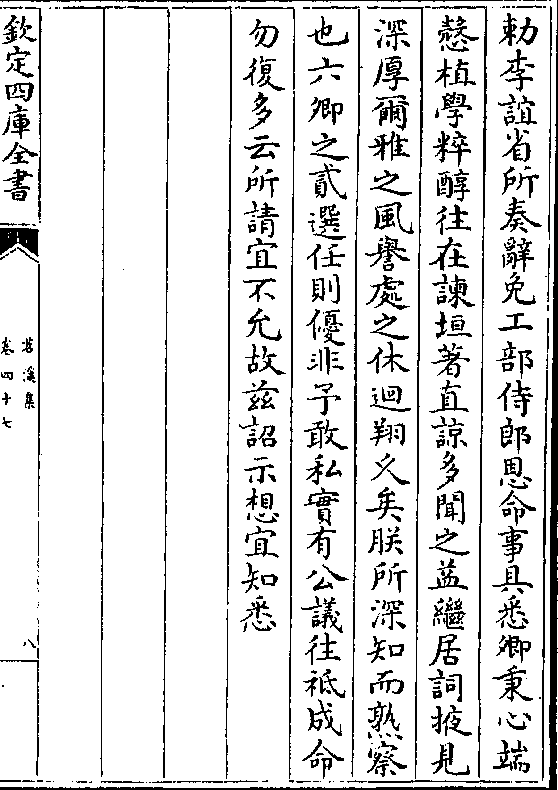 勅李誼省所奏辭免工部侍郎恩命事具悉卿秉心端
慤植學粹醇往在諫垣著直諒多聞之益繼居詞掖見
深厚爾雅之風譽處之休迴翔久矣朕所深知而熟察
也六卿之貳選任則優非予敢私實有公議往祗成命
勿復多云所請宜不允故兹詔示想宜知悉
欽定四庫全書
苕溪集
卷四十七
八